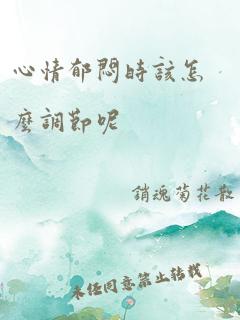 心情郁悶時該怎
麼調節呢
銷魂菊花散
未经同意禁止转载